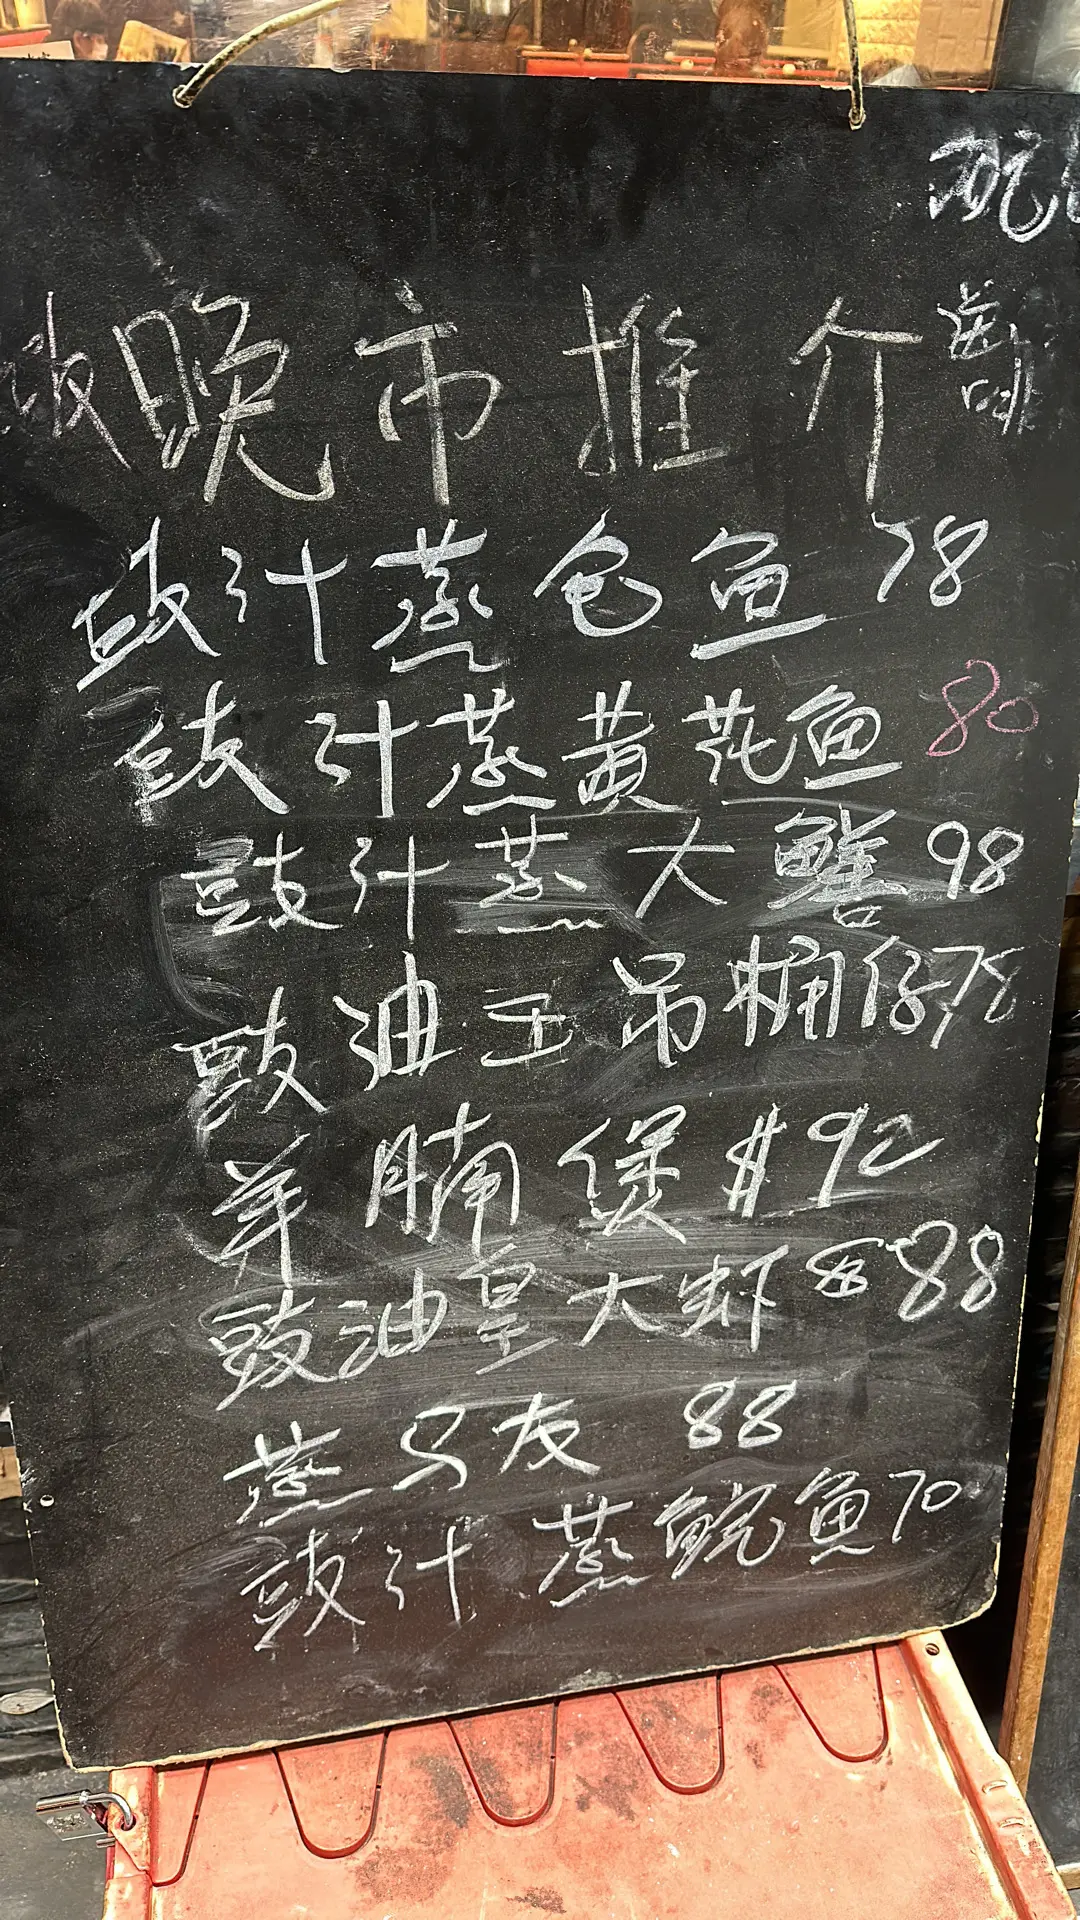 晚市推介
送
啡
豉汁蒸仓鱼 78
豉汁蒸黄花鱼 80
豉汁蒸大鱔 98
豉油王吊桶仔 78
羊腩煲 $92
豉油皇大虾 88
蒸马友 88
豉汁蒸鲩鱼 70